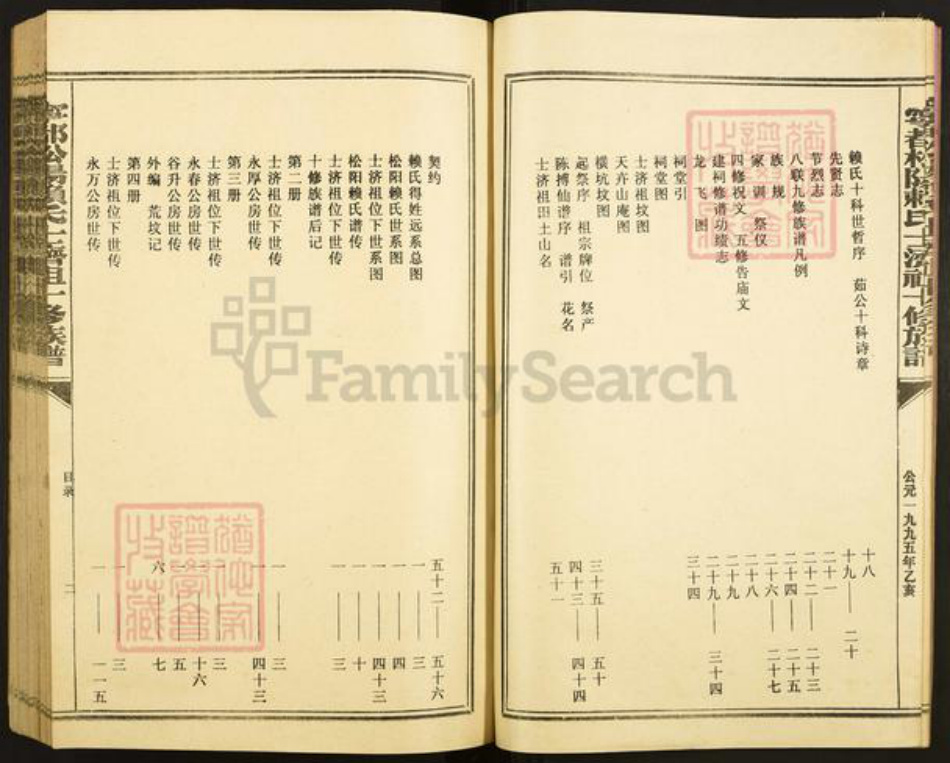 赖氏十科世哲序 茹公十科诗章 十八
先贤志 十九——二十
节烈志 二十一
八联九修族谱凡例 二十二——二十三
族规 二十四——二十五
家训 祭仪 二十六——二十七
四修祝文 五修告庙文 二十八
建祠修谱功绩志 二十九
龙飞图 二十九——三十四
祠堂引 三十四
祠堂图
士济祖坟图
天卉山庵图
横坑坟图
起祭序 祖宗牌位 祭产 三十五——五十
陈搏仙谱序 谱引 花名 四十三——四十四
士济祖田土山名 五十一
公元一九九五年乙亥
契约 五十二——五十六
赖氏得姓远系总图 一——三
松阳赖氏世系图 一——四
士济祖位下世系图 一——四十三
松阳赖氏谱传 一——十
士济祖位下世传 一——三
十修族谱后记
第二册
士济祖位下世传 一——三
永厚公房世传 一——四十三
第三册
士济祖位下世传 一——三
永春公房世传 一——十六
谷升公房世传 一——五
外编 荒坟记 六——七
第四册
士济祖位下世传 一——三
永万公房世传 一——一一五
宁都松阳赖氏士济祖十修族谱
目录
二
FamilySearch